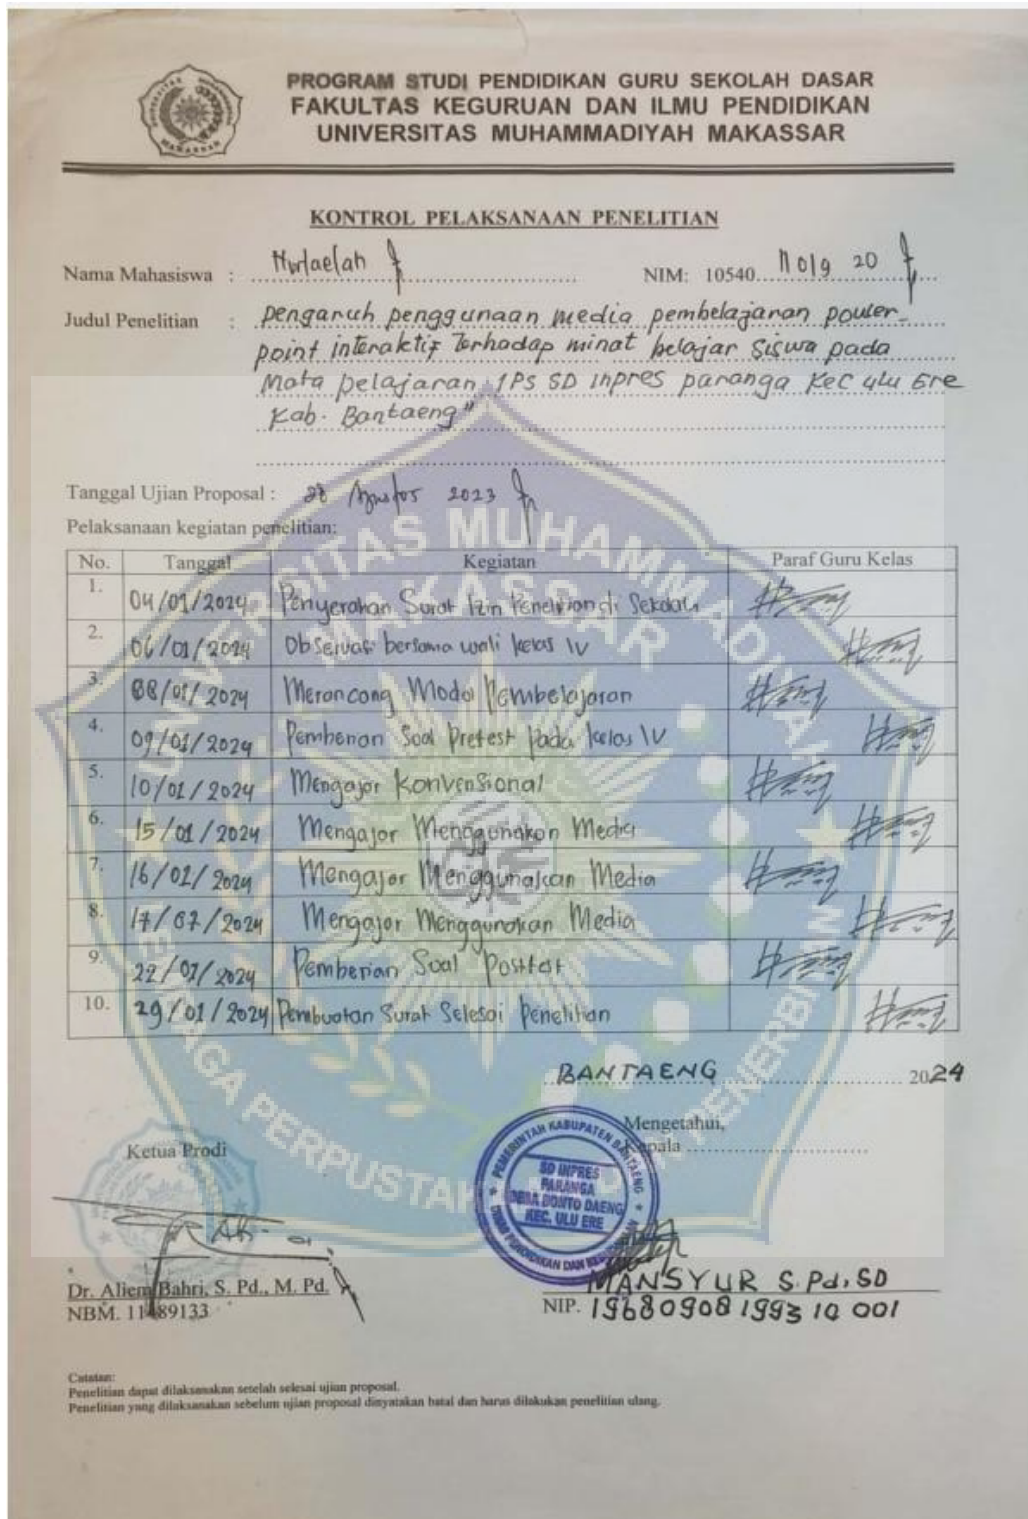 PROGRAM STUDI PENDIDIKAN GURU SEKOLAH DASAR
FAKULTAS KEGURUAN DAN ILMU PENDIDIKAN
UNIVERSITAS MUHAMMADIYAH MAKASSAR
KONTROL PELAKSANAAN PENELITIAN
Nama Mahasiswa : Nurlaelah NIM: 10540 11019 20
Judul Penelitian : pengaruh penggunaan media pembelajaran power
point interaktif Terhadap minat belajar siswa pada
Mata pelajaran IPS SD Inpres paranga Kec Ulu Ere
Kab. Bantaeng"
Tanggal Ujian Proposal : 28 Agustus 2023
Pelaksanaan kegiatan penelitian:
No. Tanggal Kegiatan Paraf Guru Kelas
1. 04/01/2024 Penyerahan Surat Izin Penelitian di Sekolah
2. 06/01/2024 Observasi bersama wali kelas IV
3. 08/01/2024 Merancang Modol Pembelajaran
4. 09/01/2024 Pemberian Soal Pretest Pada kelas IV
5. 10/01/2024 Mengajar Konvensional
6. 15/01/2024 Mengajar Menggunakan Media
7. 16/01/2024 Mengajar Menggunakan Media
8. 17/01/2024 Mengajar Menggunakan Media
9. 22/01/2024 Pemberian Soal Posttest
10. 29/01/2024 Pembuatan Surat Selesai Penelitian
BANTAENG 2024
Mengetahui,
Ketua Prodi Kepala
PEMERINTAH KABUPATEN BANTAENG
SD INPRES
PARANGA
DESA BONTO DAENG
KEC. ULU ERE
DINAS PENDIDIKAN DAN KEBUDAYAAN
Dr. Aliem Bahri, S. Pd., M. Pd. MANSYUR S.Pd.SD
NBM. 11489133 NIP. 19680908 1993 10 001
Catatan:
Penelitian dapat dilaksanakan setelah selesai ujian proposal.
Penelitian yang dilaksanakan sebelum ujian proposal dinyatakan batal dan harus dilakukan penelitian ulang.
UNIVERSITAS MUHAMMADIYAH
MAKASSAR